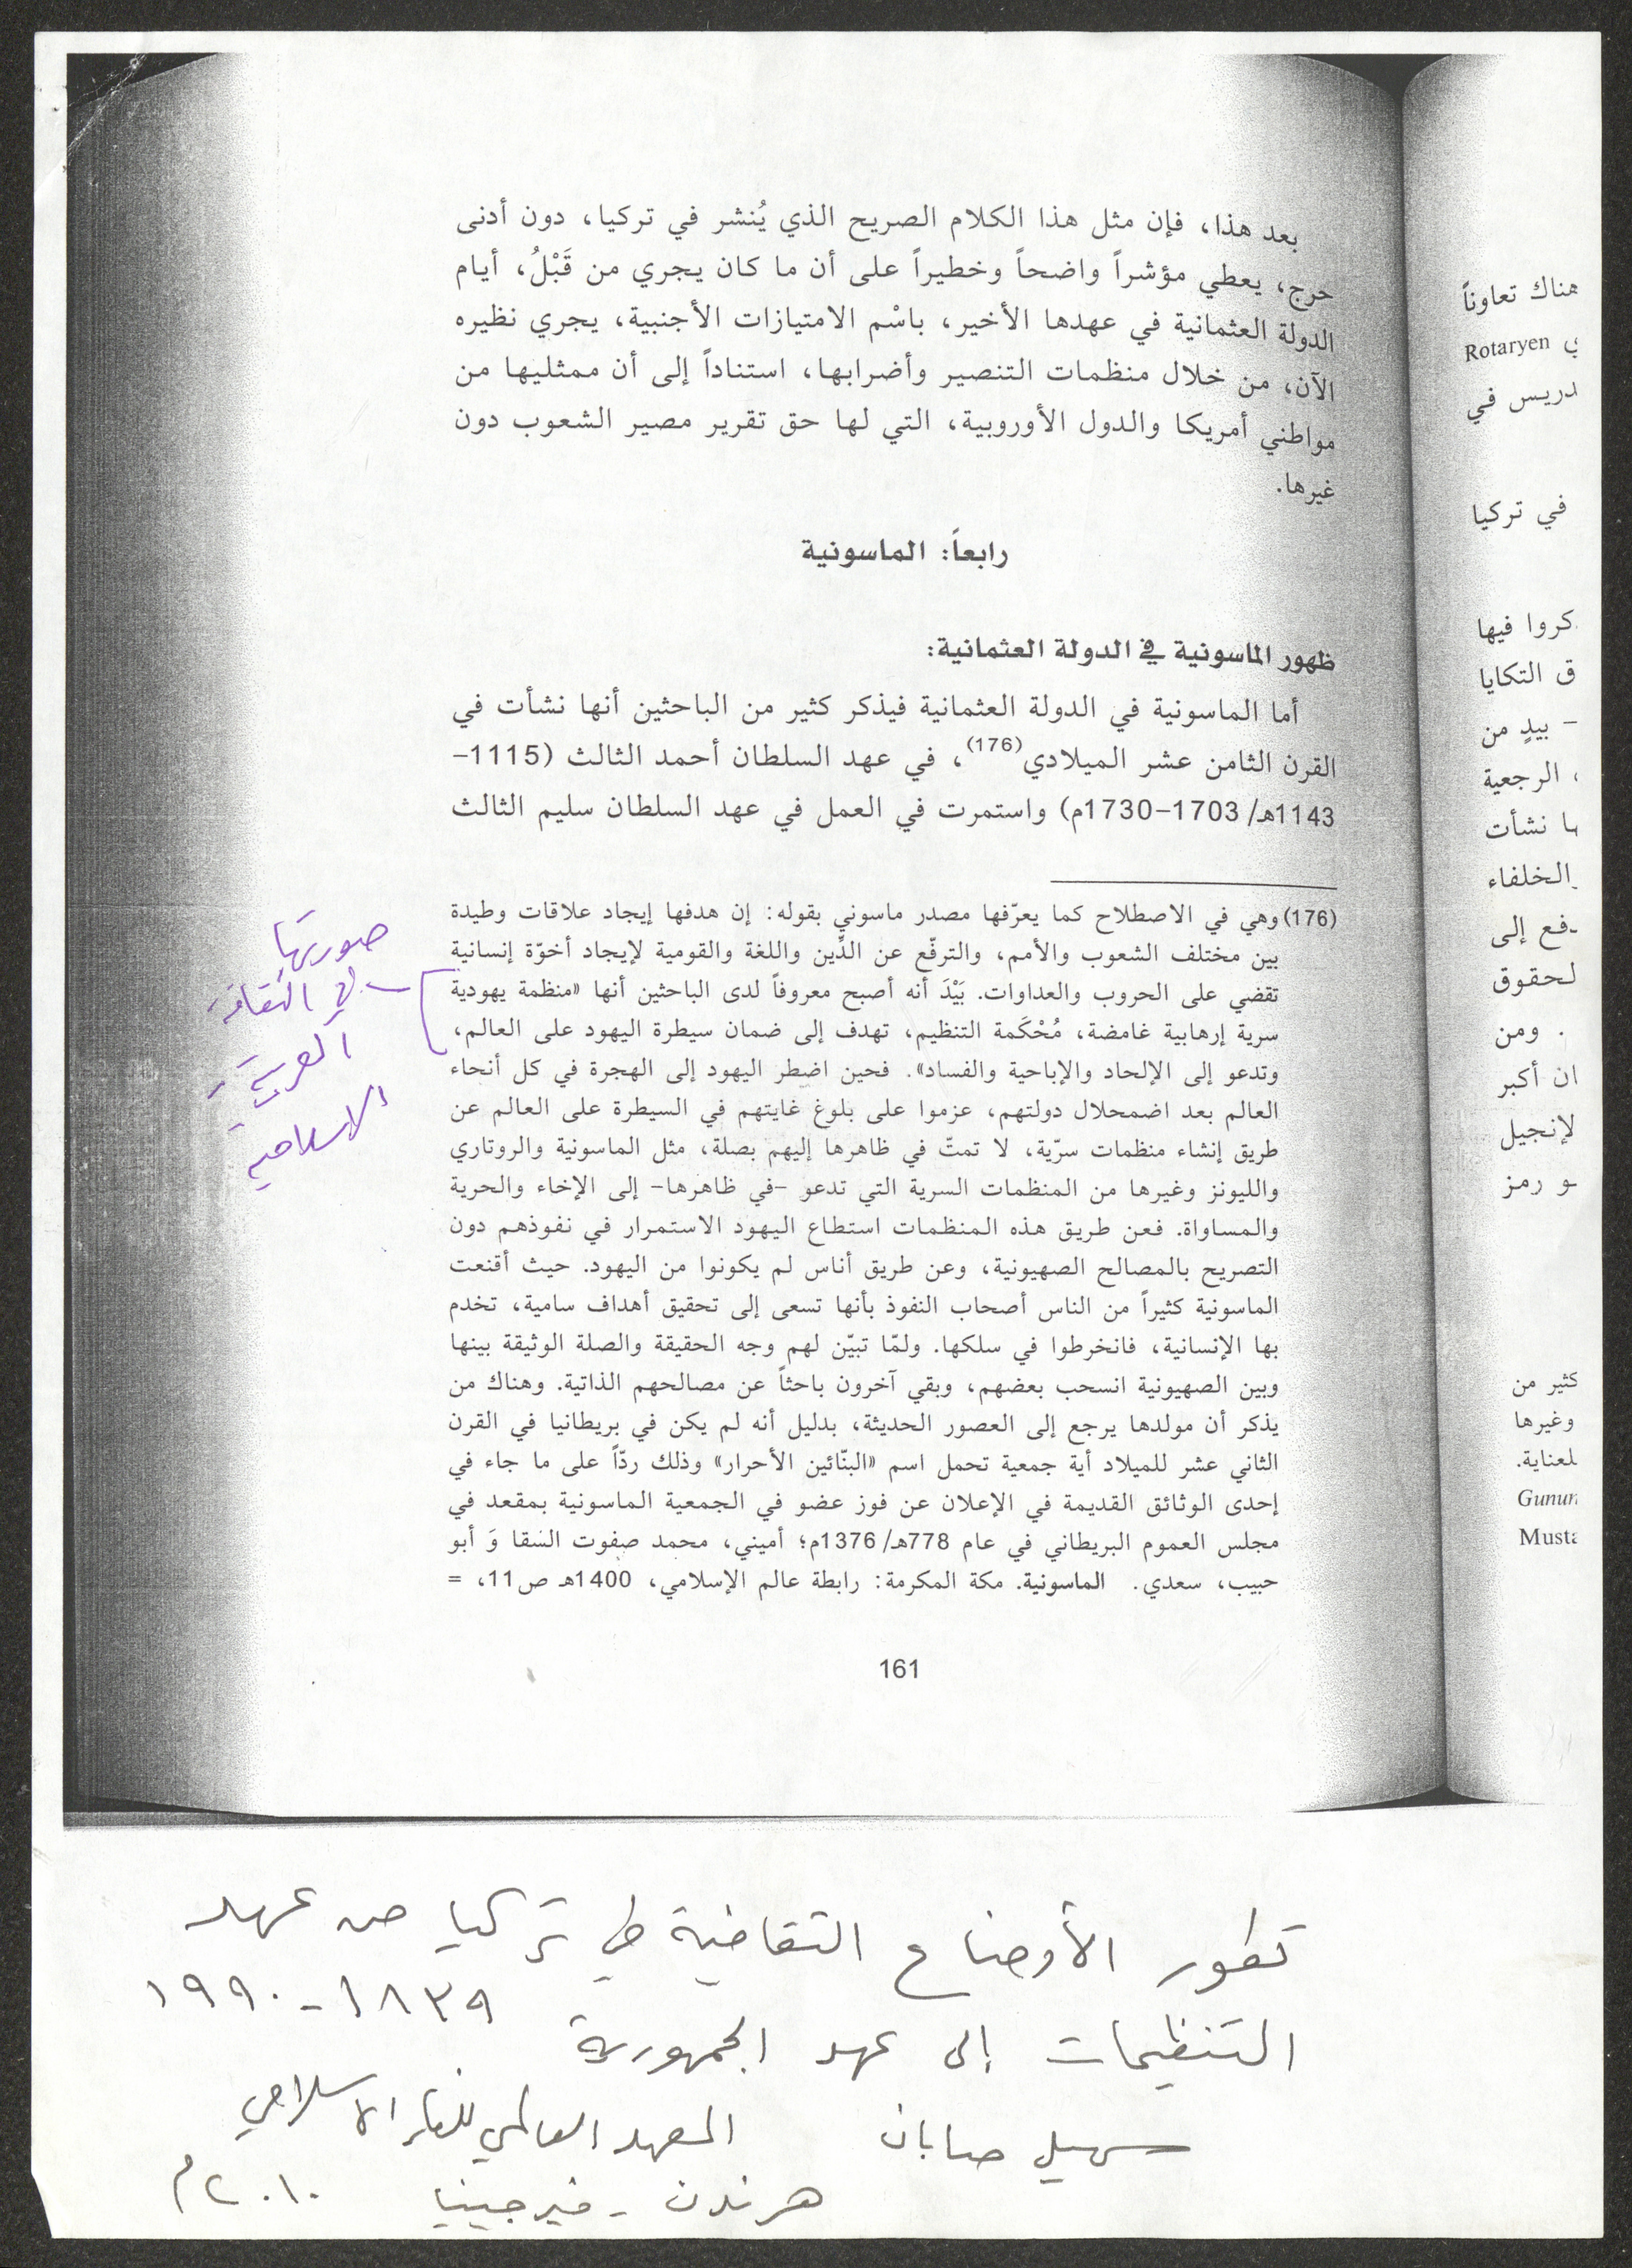 بعد هذا، فإن مثل هذا الكلام الصريح الذي يُنشر في تركيا، دون أدنى
حرج، يعطي مؤشراً واضحاً وخطيراً على أن ما كان يجري من قَبْلُ، أيام
الدولة العثمانية في عهدها الأخير، باسْم الامتيازات الأجنبية، يجري نظيره
الآن، من خلال منظمات التنصير وأضرابها، استناداً إلى أن ممثليها من
مواطني أمريكا والدول الأوروبية، التي لها حق تقرير مصير الشعوب دون
غيرها.
رابعاً: الماسونية
ظهور الماسونية في الدولة العثمانية:
أما الماسونية في الدولة العثمانية فيذكر كثير من الباحثين أنها نشأت في
القرن الثامن عشر الميلادي(176)، في عهد السلطان أحمد الثالث (1115–
1143هـ/ 1703–1730م) واستمرت في العمل في عهد السلطان سليم الثالث
(176) وهي في الاصطلاح كما يعرّفها مصدر ماسوني بقوله: إن هدفها إيجاد علاقات وطيدة
بين مختلف الشعوب والأمم، والترفّع عن الدِّين واللغة والقومية لإيجاد أخوّة إنسانية
تقضي على الحروب والعداوات. بَيْدَ أنه أصبح معروفاً لدى الباحثين أنها «منظمة يهودية
سرية إرهابية غامضة، مُحْكَمة التنظيم، تهدف إلى ضمان سيطرة اليهود على العالم،
وتدعو إلى الإلحاد والإباحية والفساد». فحين اضطر اليهود إلى الهجرة في كل أنحاء
العالم بعد اضمحلال دولتهم، عزموا على بلوغ غايتهم في السيطرة على العالم عن
طريق إنشاء منظمات سرّية، لا تمتّ في ظاهرها إليهم بصلة، مثل الماسونية والروتاري
والليونز وغيرها من المنظمات السرية التي تدعو –في ظاهرها– إلى الإخاء والحرية
والمساواة. فعن طريق هذه المنظمات استطاع اليهود الاستمرار في نفوذهم دون
التصريح بالمصالح الصهيونية، وعن طريق أناس لم يكونوا من اليهود. حيث أقنعت
الماسونية كثيراً من الناس أصحاب النفوذ بأنها تسعى إلى تحقيق أهداف سامية، تخدم
بها الإنسانية، فانخرطوا في سلكها. ولمّا تبيّن لهم وجه الحقيقة والصلة الوثيقة بينها
وبين الصهيونية انسحب بعضهم، وبقي آخرون باحثاً عن مصالحهم الذاتية. وهناك من
يذكر أن مولدها يرجع إلى العصور الحديثة، بدليل أنه لم يكن في بريطانيا في القرن
الثاني عشر للميلاد أية جمعية تحمل اسم «البنّائين الأحرار» وذلك ردّاً على ما جاء في
إحدى الوثائق القديمة في الإعلان عن فوز عضو في الجمعية الماسونية بمقعد في
مجلس العموم البريطاني في عام 778هـ/ 1376م؛ أميني، محمد صفوت السقا وَ أبو
حبيب، سعدي. الماسونية. مكة المكرمة: رابطة عالم الإسلامي، 1400هـ ص11، =
161
صورتها
في الثقافة
العربية
الاسلامية
هناك تعاوناً
ي Rotaryen
دريس في
في تركيا
كروا فيها
ق التكايا
– بيدٍ من
، الرجعية
ها نشأت
الخلفاء
دفع إلى
لحقوق
. ومن
ان أكبر
لإنجيل
و رمز
كثير من
وغيرها
لعناية.
Gunun
Musta
تطور الأوضاع الثقافية في تركيا من عهد
التنظيمات إلى عهد الجمهورية ١٨٣٩ - ١٩٩٠
سهيل صابان المعهد العالمي للفكر الاسلامي
هرندن - فيرجينيا ٢٠١٠م